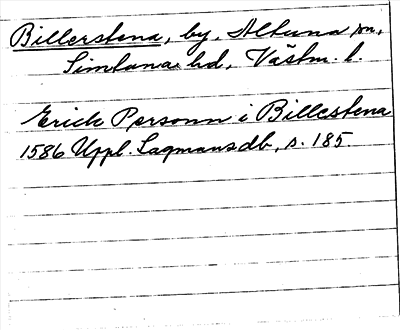 Billerstena, by, Altuna sn,
Simtuna hd, Västm. l.
Erich Personn i Billestena
1586 Uppl. Lagmansdb, s. 185.